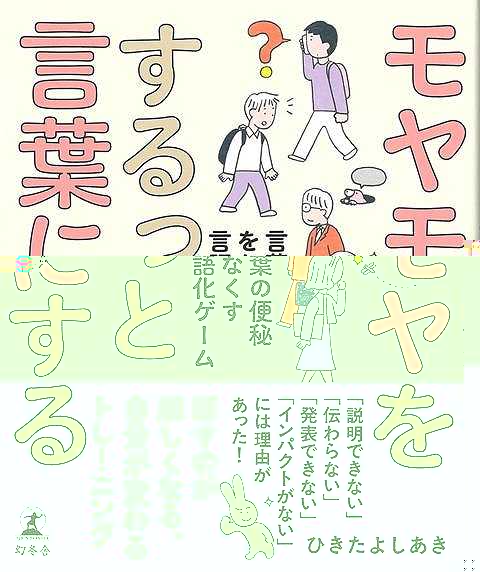 モヤモヤを
するっと
言葉にする
言葉の便秘
をなくす
言語化ゲーム
「説明できない」
「伝わらない」
「発表できない」
「インパクトがない」
には理由が
あった！
ひきたよしあき
トレーニング
幻冬舎